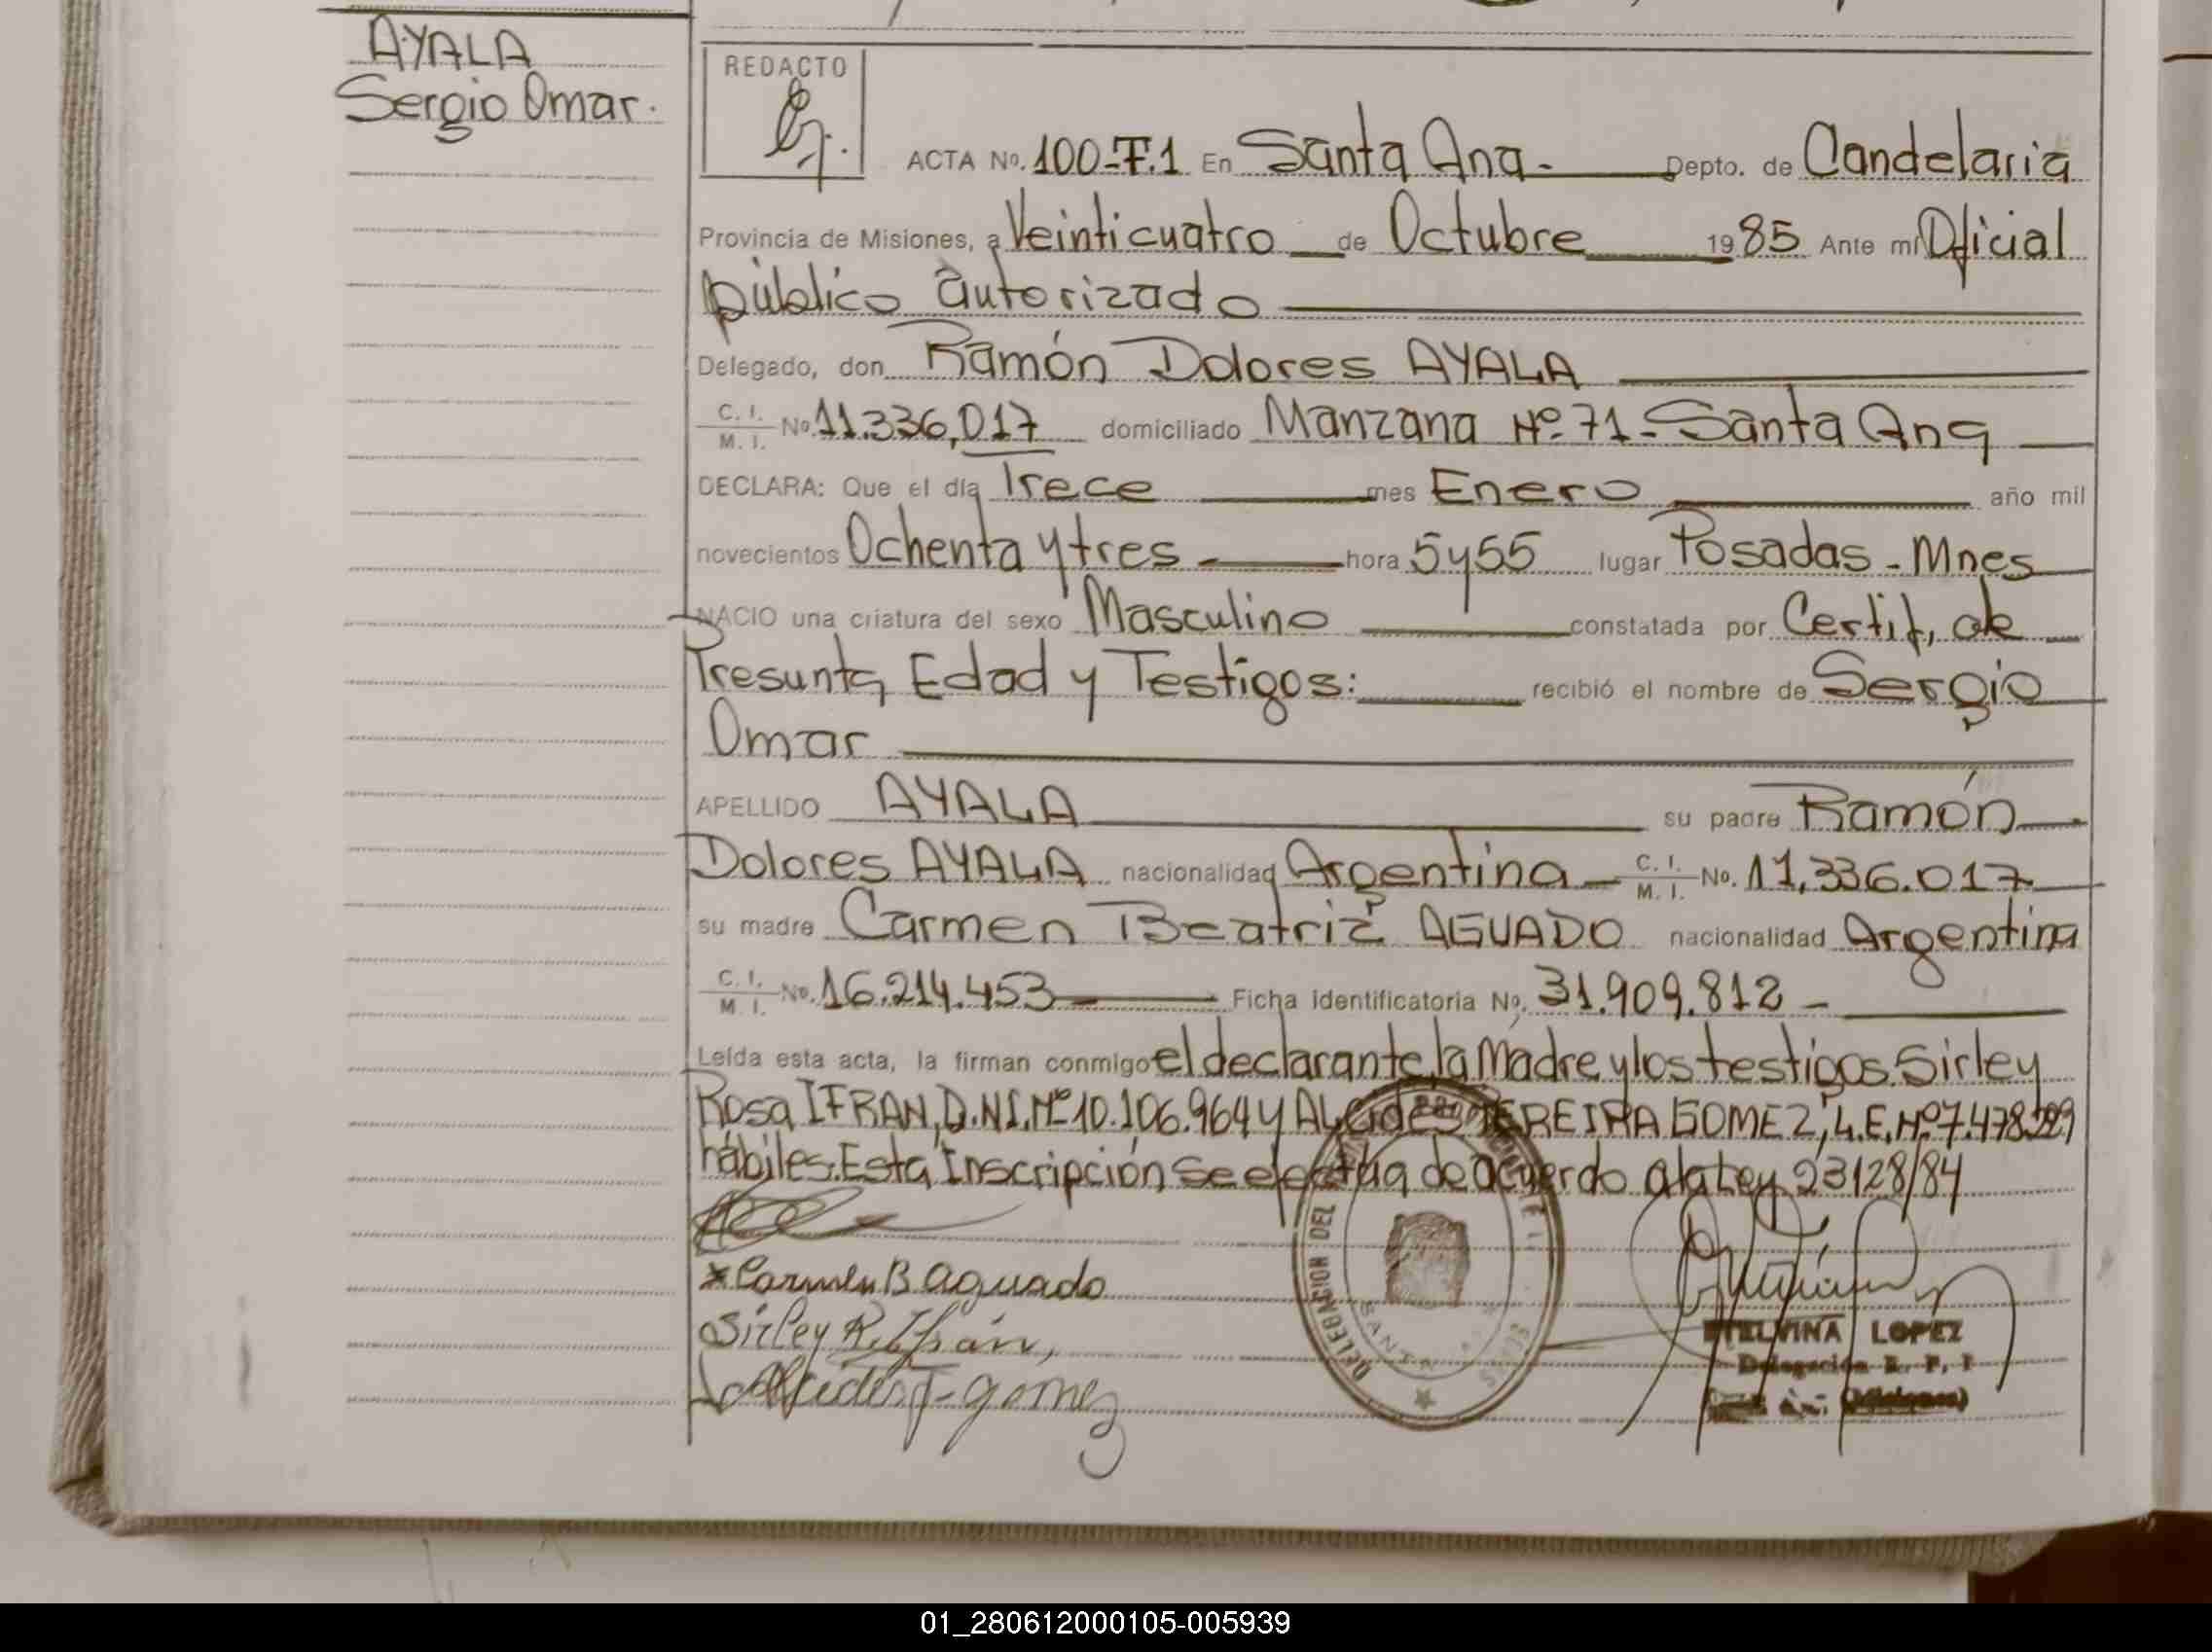 AYALA
Sergio Omar.
REDACTO
ACTA No. 100-T.1 En Santa Ana. Depto. de Candelaria
Provincia de Misiones, a Veinticuatro de Octubre 1985 Ante mí Oficial
público autorizado
Delegado, don Ramón Dolores AYALA
C. I. / M. I. No. 11.336,017 domiciliado Manzana Nº 71 - Santa Ana
DECLARA: Que el día Trece mes Enero año mil
novecientos Ochenta y tres hora 5y55 lugar Posadas - Mnes
NACIO una criatura del sexo Masculino constatada por Certif, de
Presunta Edad y Testigos: recibió el nombre de Sergio
Omar
APELLIDO AYALA su padre Ramón
Dolores AYALA nacionalidad Argentina C. I. / M. I. No. 11,336.017
su madre Carmen Beatriz AGUADO nacionalidad Argentina
C. I. / M. I. No. 16.214.453 Ficha identificatoria No. 31.909.812 -
Leída esta acta, la firman conmigo el declarante, la Madre y los testigos Sirley
Rosa IFRAN, D.N.I. Nº 10.106.964 y ALCIDES PEREIRA GOMEZ, L.E. Nº 7.478.
hábiles. Esta Inscripción se efectúa de acuerdo a la Ley 23128/84
Carmen B Aguado
Sirley R. Ifrán,
gomez
DELEGACION DEL
SANTA
ETELVINA LOPEZ
Delegación R. P. P
(Misiones)
01_280612000105-005939